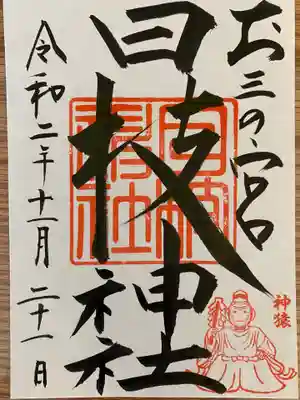 お三の宮
日枝神社
日枝神社
神猿
令和二年十一月二十一日